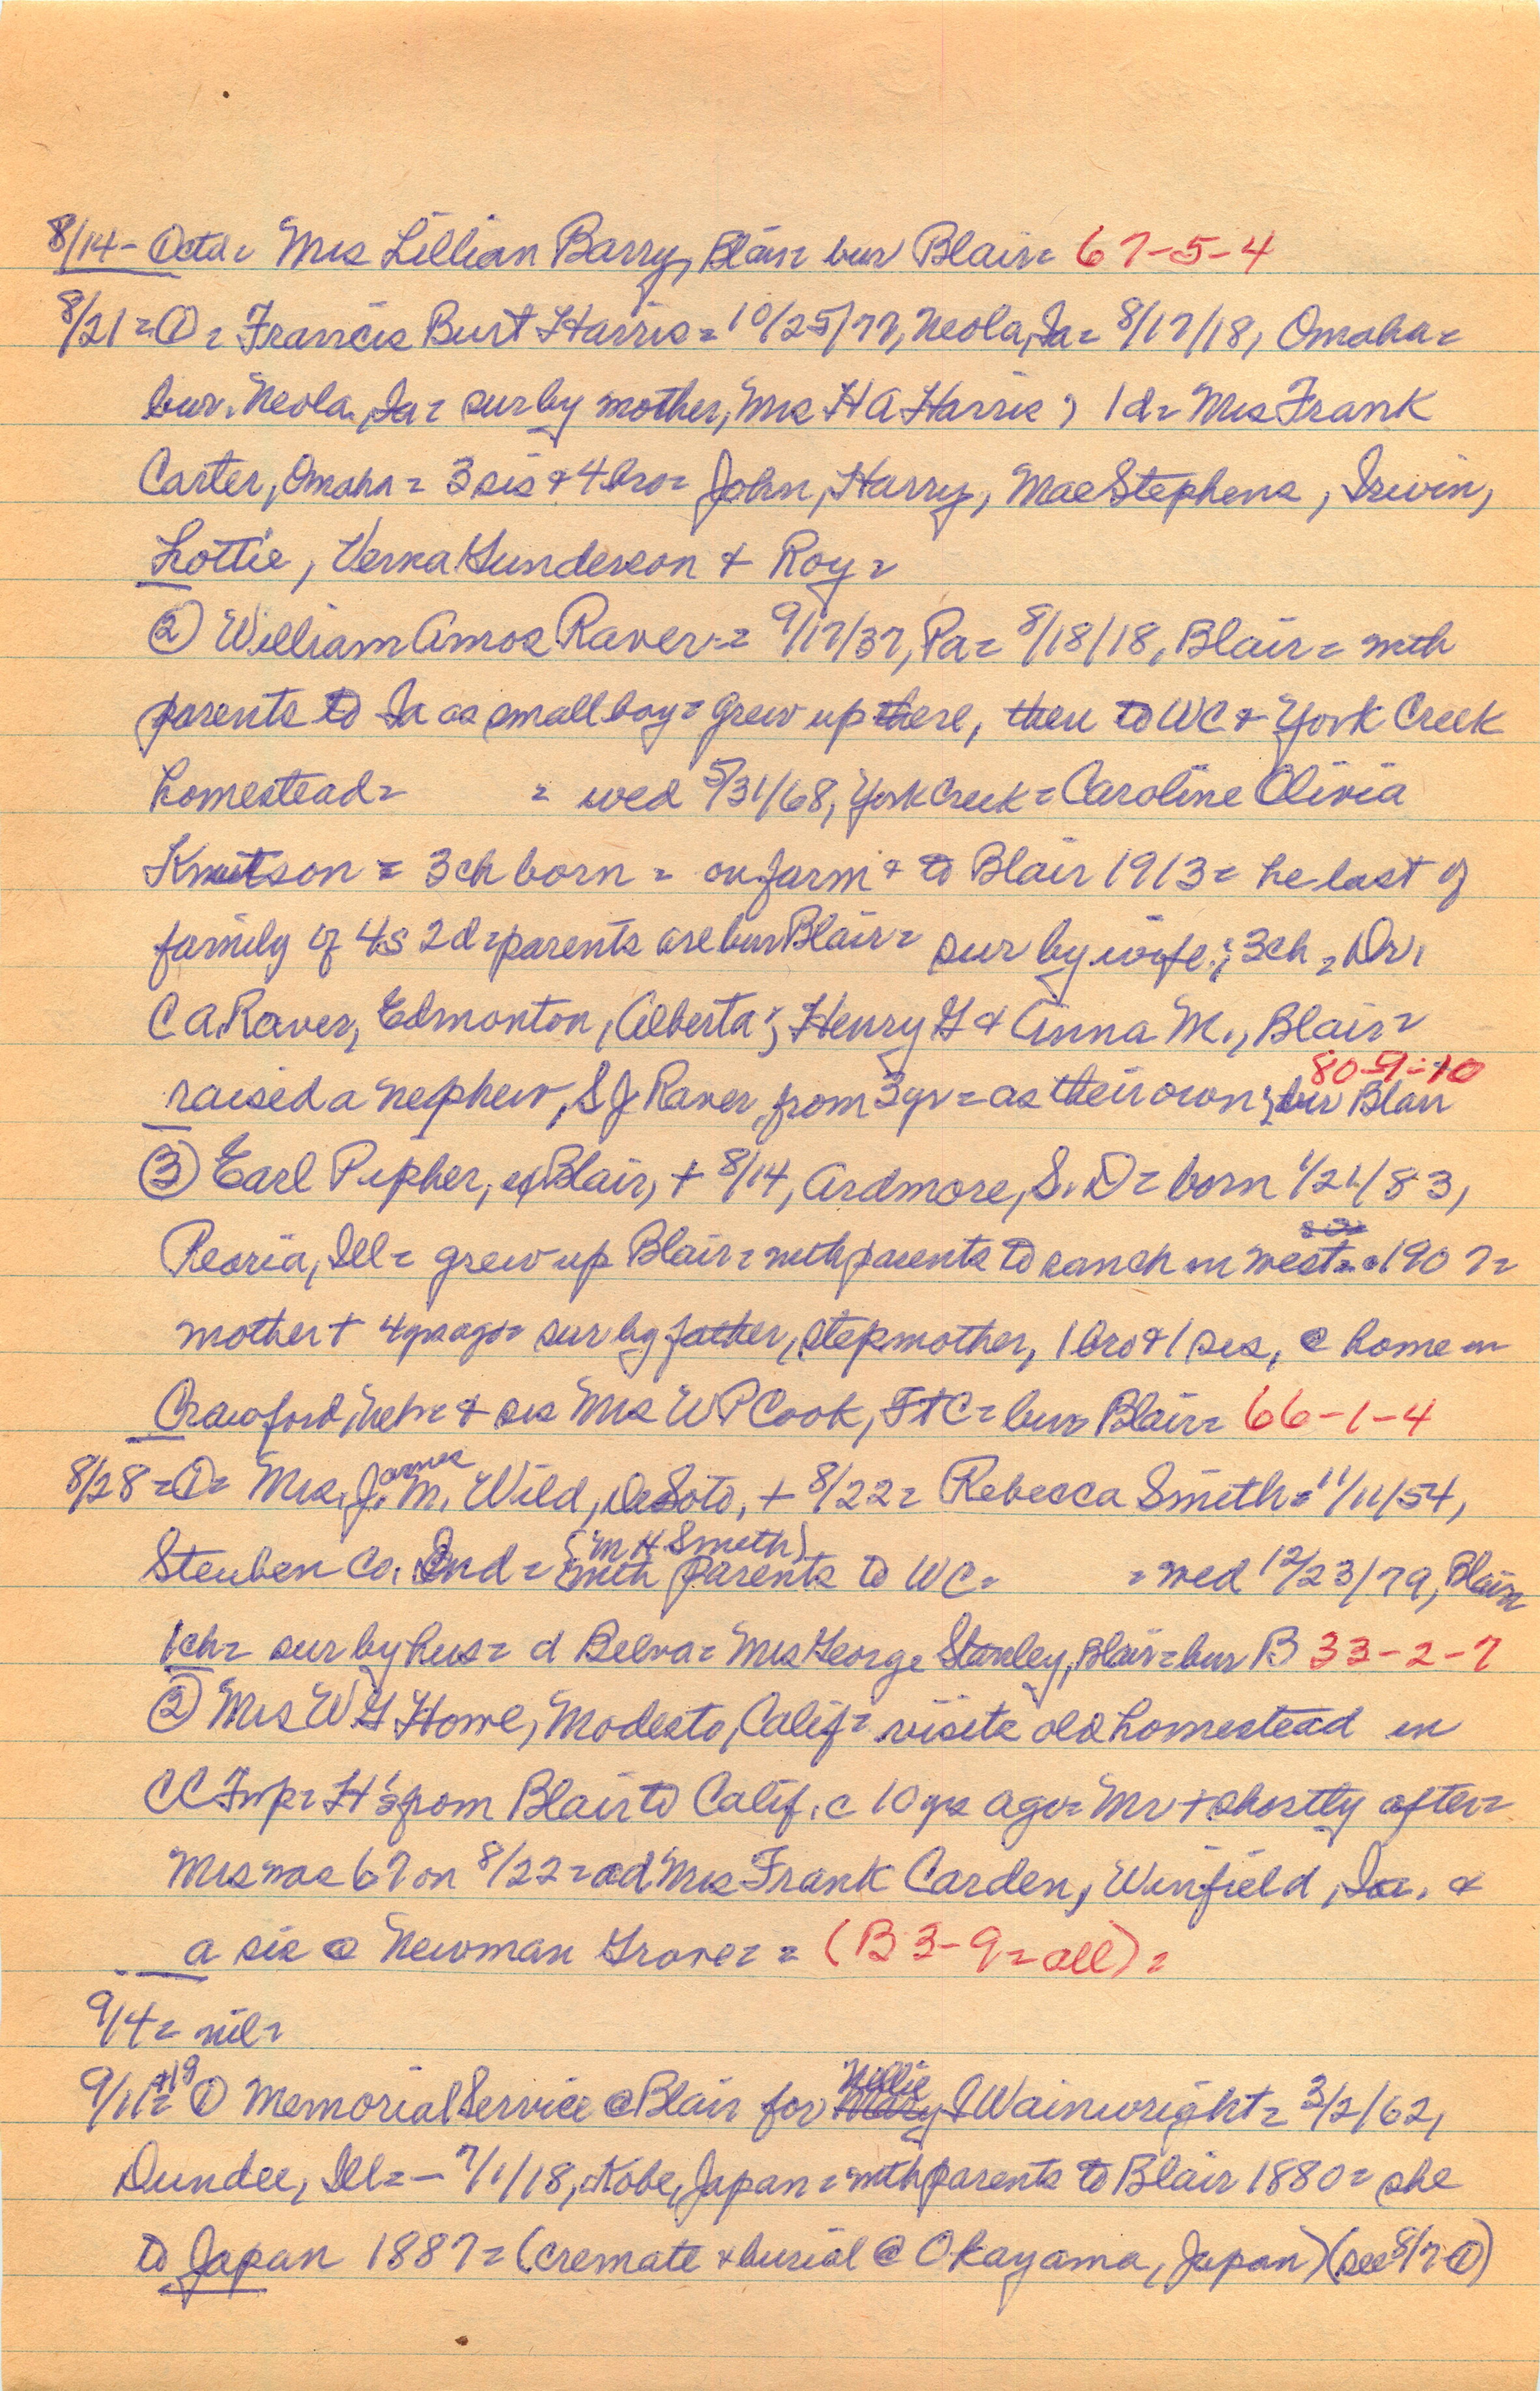 8/14 - Octd = Mrs Lillian Barry, Blair = bur Blair = 67-5-4
8/21 = ① = Francis Burt Harris = 10/25/77, Neola, Ia = 8/17/18, Omaha =
bur. Neola, Ia = sur by mother, Mrs H A Harris ; 1 d = Mrs Frank
Carter, Omaha = 3 sis & 4 bro = John, Harry, Mae Stephens, Irwin,
Lottie, Verna Gunderson & Roy =
② William Amos Raver = 9/17/37, Pa = 8/18/18, Blair = with
parents to Ia as small boy = grew up there, then to WC & York Creek
homestead = = wed 5/31/68, York Creek = Caroline Olivia
Knutson = 3 ch born = on farm & to Blair 1913 = he last of
family of 4s 2d = parents are bur Blair = sur by wife ; 3 ch = Dr.
C A Raver, Edmonton, Alberta ; Henry G & Anna M., Blair =
80-9-10
raised a nephew, S J Raver, from 3 yr = as their own ; bur Blair
③ Earl Pipher, of Blair, + 8/14, Ardmore, S. D = born 1/21/83,
Peoria, Ill = grew up Blair = with parents to ranch in west = 1907 =
mother + 4 yrs ago = sur by father, stepmother, 1 bro & 1 sis, @ home in
Crawford, Nebr = & sis Mrs W P Cook, Ft C = bur Blair = 66-1-4
8/28 = ① = Mrs. James M. Wild, DeSoto, + 8/22 = Rebecca Smith = 11/11/54,
(M H Smith)
Steuben Co. Ind = with parents to WC = = wed 12/23/79, Blair
1 ch = sur by hus = d Belva = Mrs George Stanley, Blair = bur B 33-2-7
② Mrs W G Howe, Modesto, Calif = visits old homestead in
CC Twp = H's from Blair to Calif. c 10 yrs ago = Mr + shortly after =
Mrs was 67 on 8/22 = a d Mrs Frank Carden, Winfield, Ia. &
a sis @ Newman Grove = = (B 3-9 = all) =
9/4 = nil =
9/11 = ① Memorial Service @ Blair for Mary Nellie J Wainwright = 3/2/62,
Dundee, Ill = - 7/1/18, Kobe, Japan = with parents to Blair 1880 = she
to Japan 1887 = (cremate & burial @ Okayama, Japan) (see 8/7 ①)